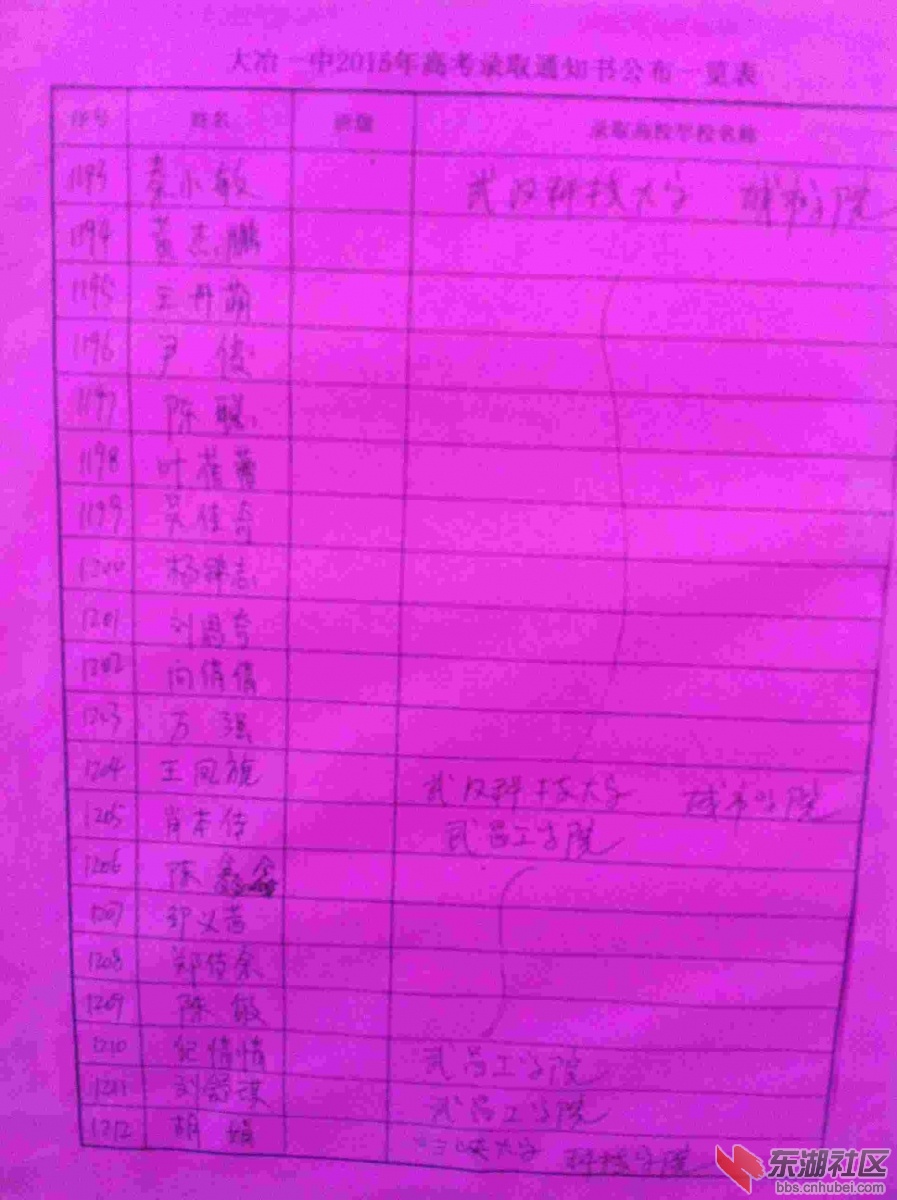 大冶一中2015年高考录取通知书公布一览表
序号 姓名 班级 录取高校军校名称
1193 秦小敏 武汉科技大学 城市学院
1194 黄杰鹏
1195 王丹萌
1196 尹俊
1197 陈聪
1198 叶蓓蕾
1199 吴佳奇
1200 杨
1201 刘思奇
1202 向倩倩
1203 万强
1204 王凤旗 武汉科技大学 城市学院
1205 肖本传 武昌工学院
1206 陈鑫
1207 邹义
1208 郑传余
1209 陈敏
1210 纪倩情 武昌工学院
1211 刘舒琪 武昌工学院
1212 胡娟 三峡大学 科技学院
东湖社区
bbs.cnhubei.com